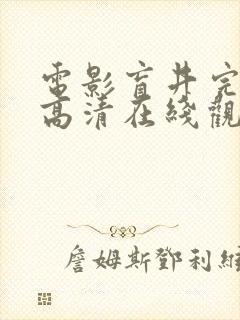 電影盲井完
高清在綫觀
詹姆斯鄧利維